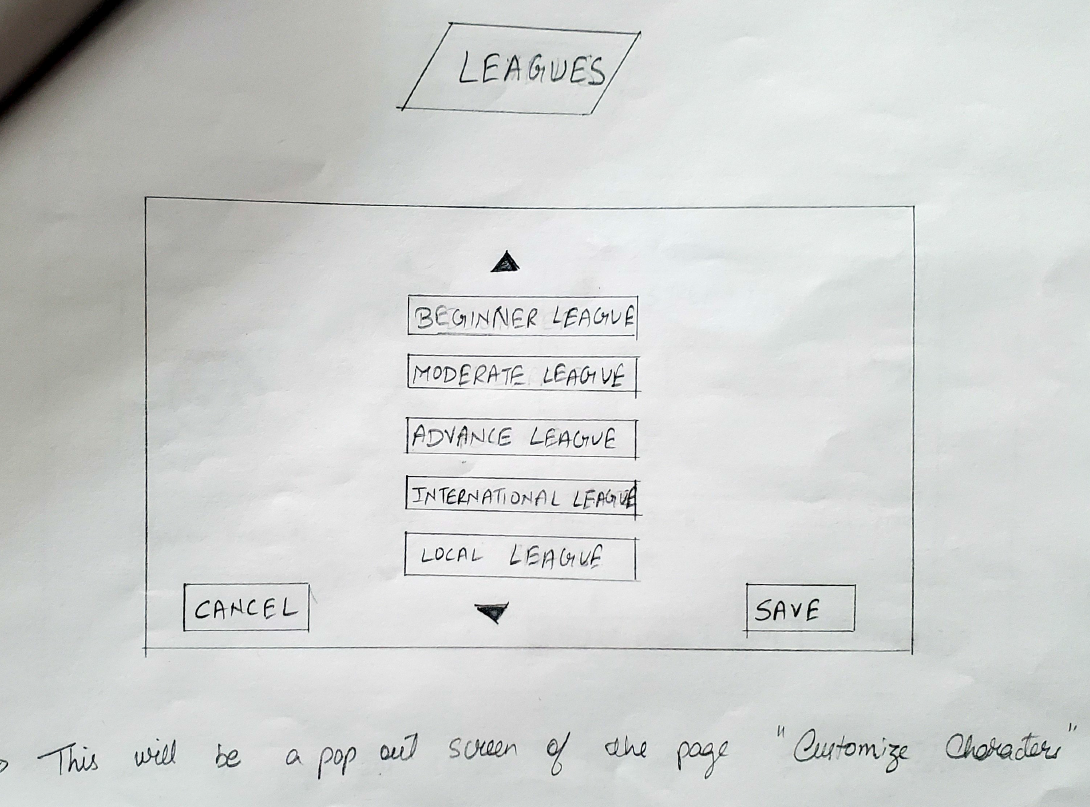 LEAGUES
BEGINNER LEAGUE
MODERATE LEAGUE
ADVANCE LEAGUE
INTERNATIONAL LEAGUE
LOCAL LEAGUE
CANCEL
SAVE
This will be a pop out screen of the page "Customize Character"